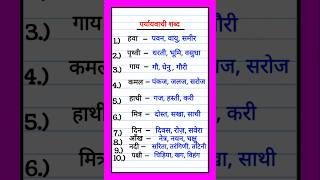 पर्यायवाची शब्द
1.) हवा – पवन, वायु, समीर
2.) पृथ्वी – धरती, भूमि, वसुधा
3.) गाय – गौ, धेनु, गौरी
4.) कमल – पंकज, जलज, सरोज
5.) हाथी – गज, हस्ती, करी
6.) मित्र – दोस्त, सखा, साथी
7.) दिन – दिवस, रोज़, सवेरा
8.) आँख – नेत्र, नयन, चक्षु
9.) नदी – सरिता, तरंगिणी, तटिनी
10.) पक्षी – चिड़िया, खग, विहंग